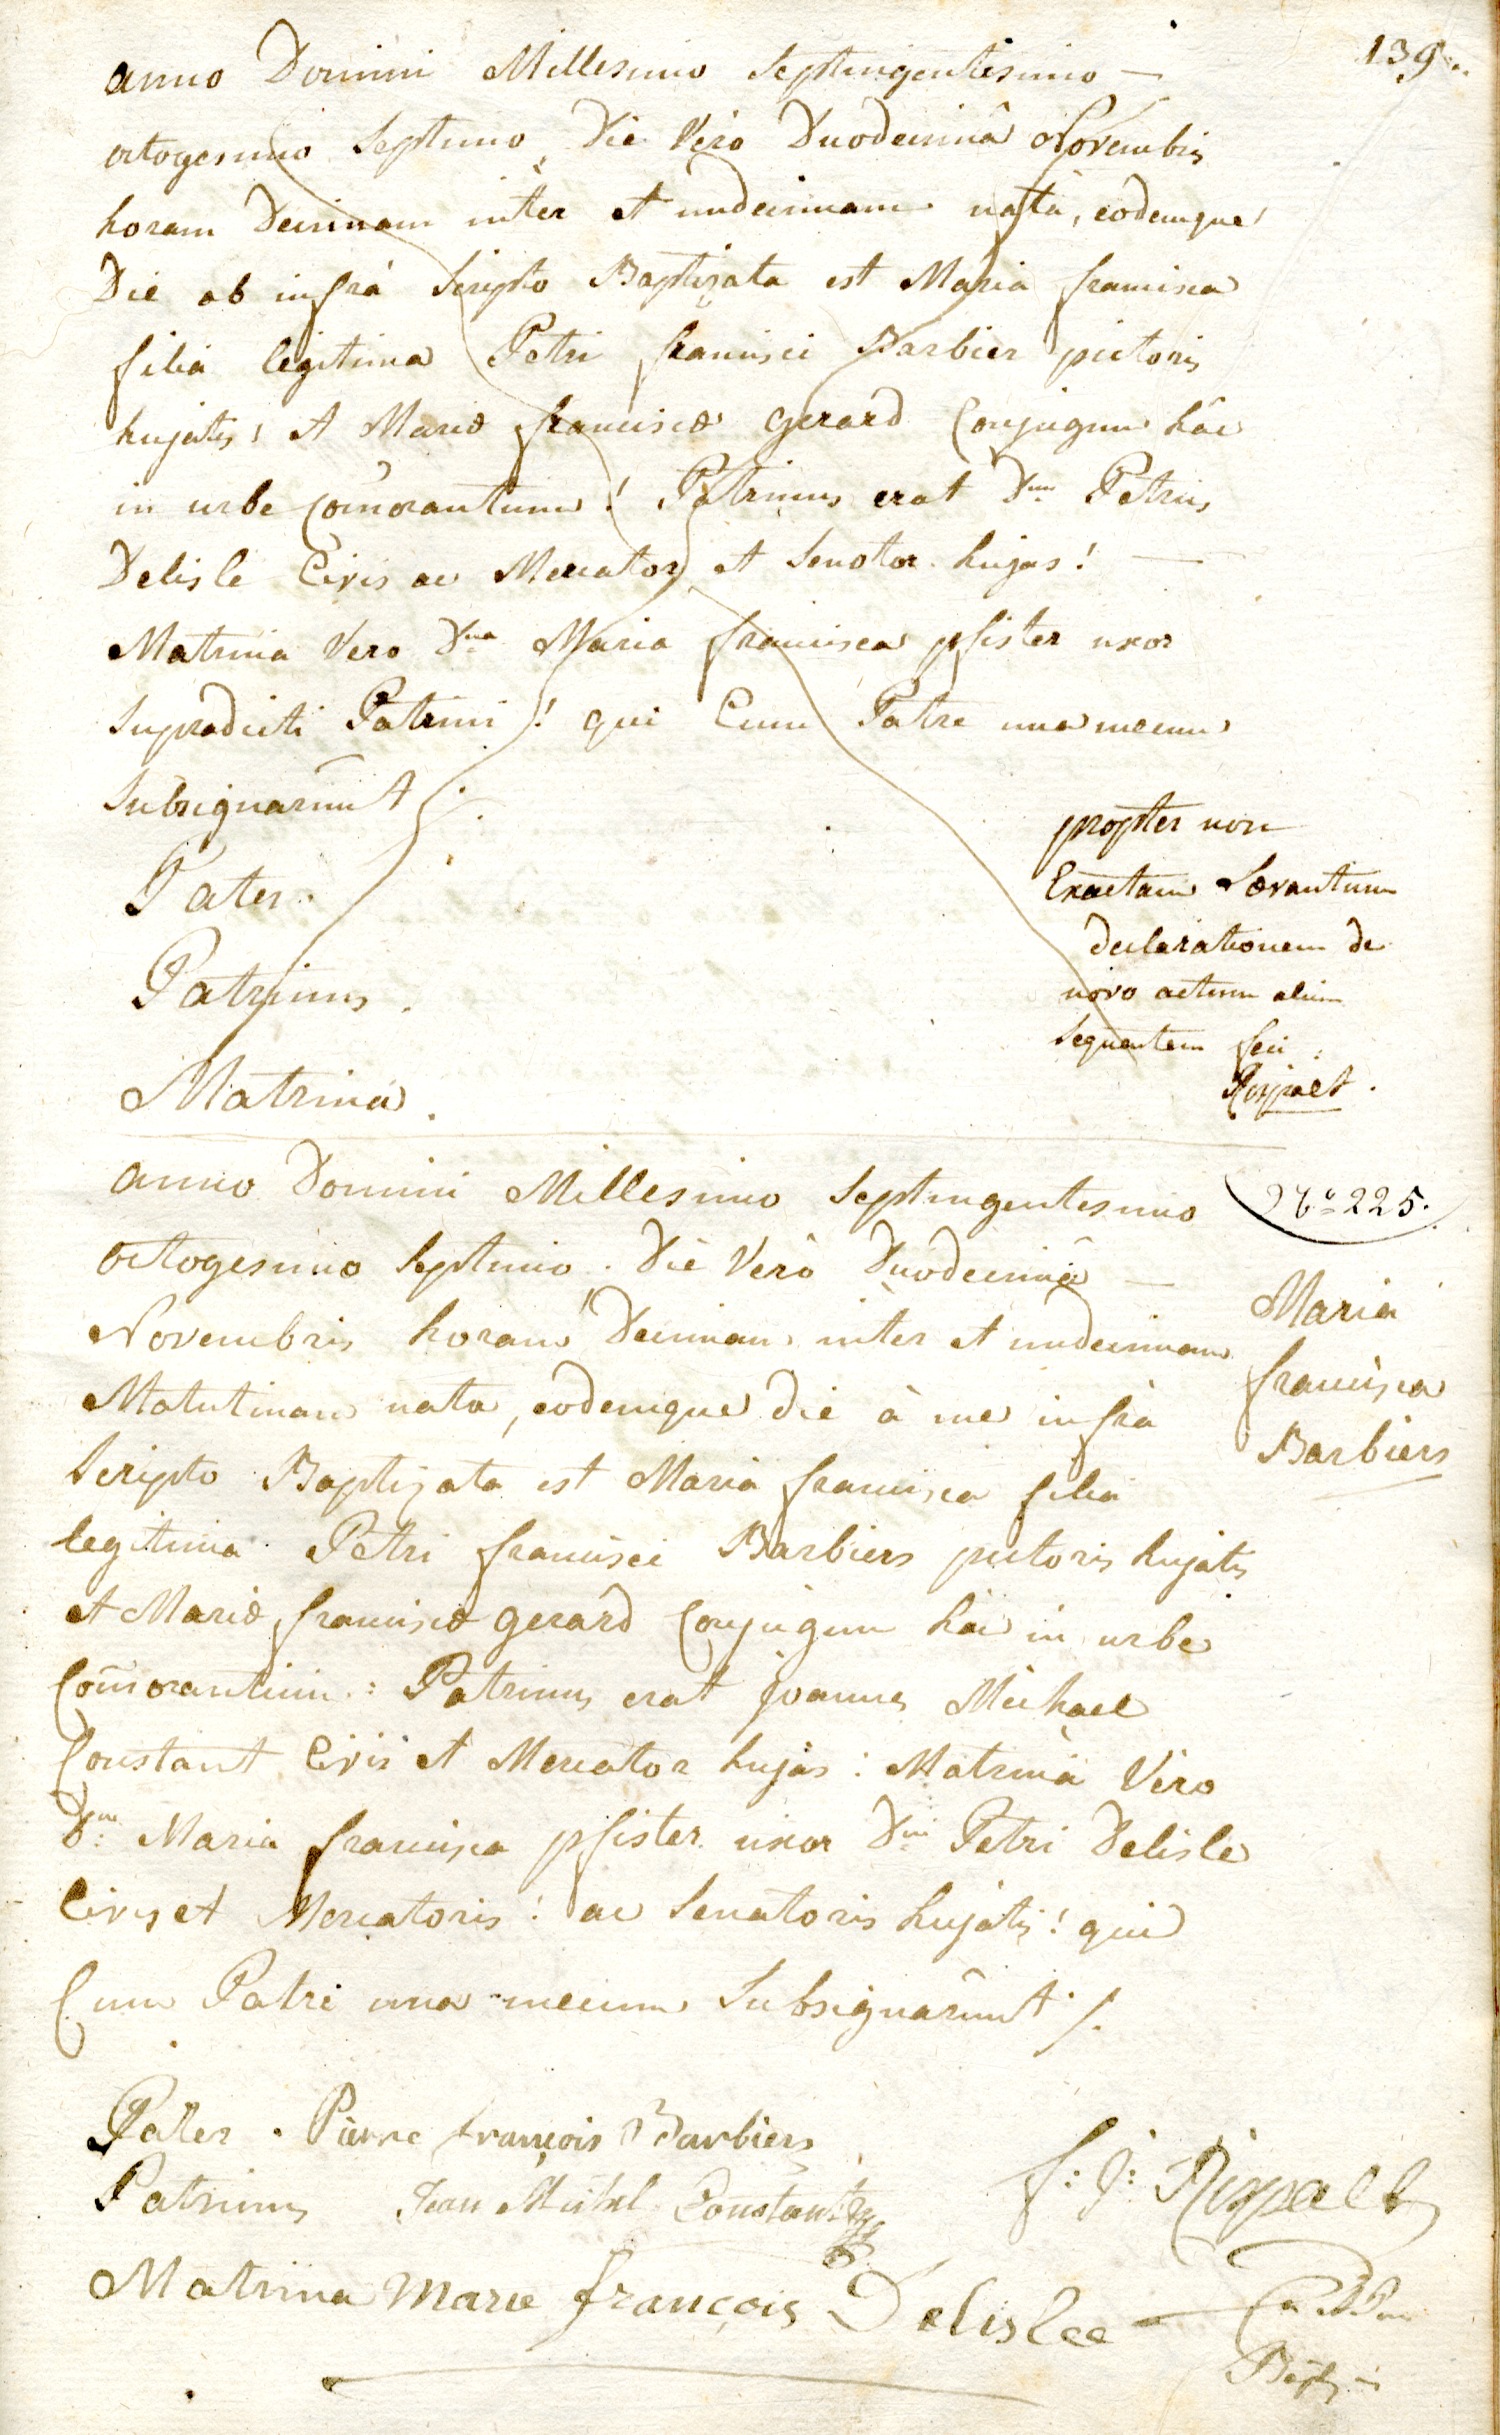 139.
anno Domini Millesimo Septingentesimo —
octogesimo Septimo, Die Vero Duodecimâ Novembris
horam Decimam inter et undecimam nata, eodemque
Die ab infrà Scripto Baptizata est Maria francisca
filia legitima Petri francisci Barbier pictoris
hujatis, et Mariæ franciscæ gerard Conjugum hâc
in urbe com̄orantium! Patrinus erat Dnus Petrus
Delisle Civis ac Mercator et Senator hujas! —
Matrina Vero Dna Maria francisca pfister uxor
Supradicti Patrini! qui Cum Patre una mecum
Subsignarûnt /:
Pater.
Patrinus.
Matrina.
propter non
Exactam Levantium
declarationem de
novo actum alium
Sequentem feci:
Rispalt.
anno Domini Millesimo Septingentesimo
octogesimo Septimo. Die Verò Duodecimâ —
Novembris horam Decimam inter et undecimam
Matutinam nata, eodemque die à me infrà
Scripto Baptizata est Maria francisca filia
legitima Petri francisci Barbiers pictoris hujatis
et Mariæ franciscæ gerard Conjugum hâc in urbe
Com̄orantium: Patrinus erat joannes Michael
Constant Civis et Mercator hujas: Matrina Vero
Dna Maria francisca pfister uxor Dni Petri Delisle
Civis et Mercatoris! ac Senatoris hujatis! qui
Cum Patre una mecum Subsignarûnt /.
No 225.
Maria
francisca
Barbiers
Pater. Pierre françois Barbiers
Patrinus Jean Michel Constant
Matrina Marie françois Delislee
f: J: Rispalt